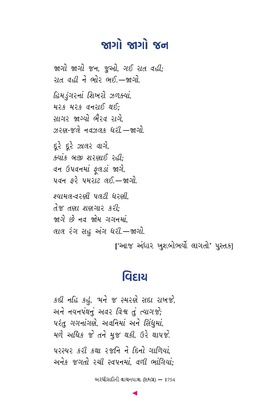 જાગો જાગો જન
જાગો જાગો જન, જુઓ, ગઈ રાત વહી;
રાત વહી ને ભોર ભઈ.—જાગો.
હિમડુંગરનાં શિખરો ઝળક્યાં,
મરક મરક વનરાઈ થઈ;
સાગર જાગ્યો ભૈરવ રાગે,
ઝરણ-જલે નવઝલક ધરી.—જાગો.
દૂરે દૂરે ઝાલર વાગે,
ક્યાંક બજી શરણાઈ રહી;
વન ઉપવનમાં ફૂલડાં જાગે,
પવન ફરે પમરાટ લઈ.—જાગો.
શ્યામલ-વરણી પલટી ધરણી,
તેજ તણા શણગાર કરી;
જાગે છે નવ જોમ ગગનમાં,
લાલ રંગ સહુ અંગ ધરી.—જાગો.
['આજ અંધાર ખુશબોભર્યો લાગતો' પુસ્તક]
વિદાય
કદી નહિ કહું, મને જ સ્મરણે સદા રાખજે,
અને નયનપંથનું અવર વિશ્વ તું ત્યાગજે;
પરંતુ ગગનાંગણે, અવનિમાં અને સિંધુમાં,
મળે અધિક જે તને મુજ થકી, ઉરે થાપજે.
પરસ્પર કરી કથા રજનિ ને દિનો ગાળિયાં,
અનેક જગતો રચી સ્વપનમાં, વળી ભાંગિયાં;
અરધી સદીની વાચનયાત્રા